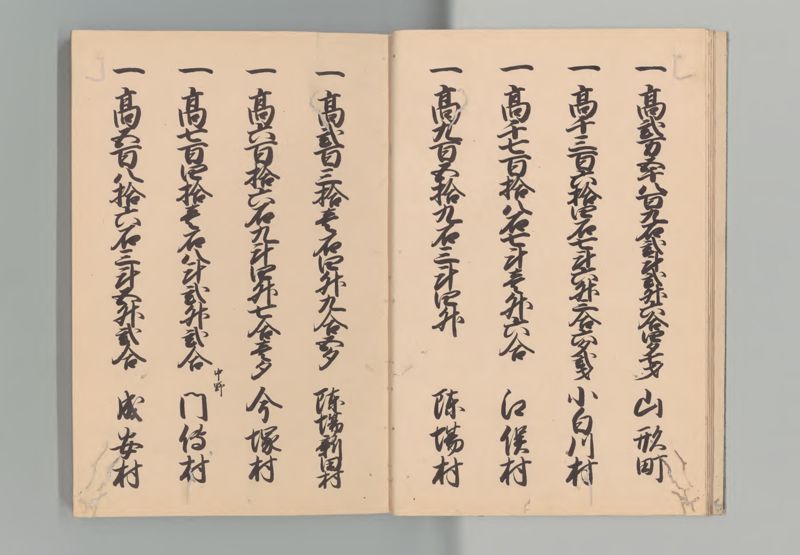 一高弐万五千八百九石弐斗弐升六合四夕壱才 山形町
一高千三百六拾四石七斗六升二合六夕弐才 小白川村
一高千七百拾八石七斗壱升六合 江俣村
一高九百五拾九石三斗四升 陣場村
一高弐百三拾壱石四升九合五夕 陣場新田村
一高六百拾六石九斗四升七合壱夕 今塚村
一高七百四拾壱石八斗弐升弐合 中野門伝村
一高五百八拾六石三斗五升弐合 成安村